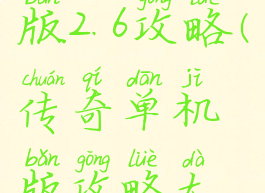 bǎn gōng lüè
版2.6攻略(
chuán qí dān jī
传奇单机
bǎn gōng lüè dà
版攻略大